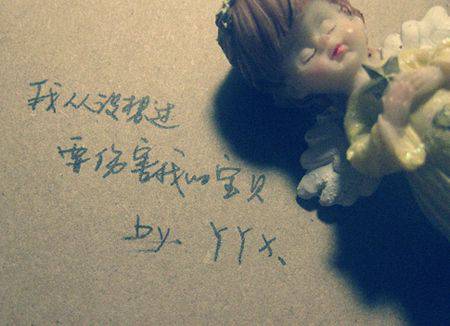 我从没想过
要伤害我的宝贝
by. YYX.